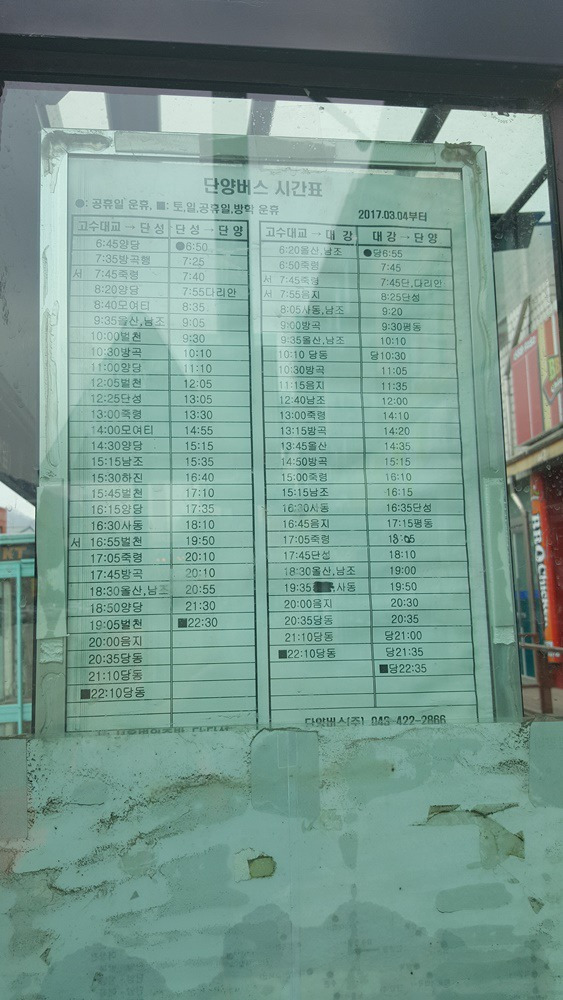 단양버스 시간표
●: 공휴일 운휴, ■: 토,일,공휴일,방학 운휴
2017.03.04부터
고수대교 → 단성 단성 → 단양
6:45양당 ●6:50
7:35방곡행 7:25
서 7:45죽령 7:40
8:20양당 7:55다리안
8:40모여티 8:35
9:35올산,남조 9:05
10:00벌천 9:30
10:30방곡 10:10
11:00양당 11:10
12:05벌천 12:05
12:25단성 13:05
13:00죽령 13:30
14:00모여티 14:55
14:30양당 15:15
15:15남조 15:35
15:30하진 16:40
15:45벌천 17:10
16:15양당 17:35
16:30사동 18:10
서 16:55벌천 19:50
17:05죽령 20:10
17:45방곡 20:10
18:30올산,남조 20:55
18:50양당 21:30
19:05벌천 ■22:30
20:00음지
20:35당동
21:10당동
■22:10당동
고수대교 → 대강 대강 → 단양
6:20올산,남조 ●당6:55
6:50죽령 7:45
서 7:45죽령 7:45단,다리안
서 7:55음지 8:25단성
8:05사동,남조 9:20
9:00방곡 9:30평동
9:35올산,남조 10:10
10:10 당동 당10:30
10:30방곡 11:05
11:15음지 11:35
12:40남조 12:00
13:00죽령 14:10
13:15방곡 14:20
13:45올산 14:35
14:50방곡 15:15
15:00죽령 16:10
15:15남조 16:15
16:30사동 16:35단성
16:45음지 17:15평동
17:05죽령 18:05
17:45단성 18:10
18:30올산,남조 19:00
19:35 사동 19:50
20:00음지 20:30
20:35당동 20:35
21:10당동 당21:00
■22:10당동 당21:35
■당22:35
단양버스(주) 043-422-2866
BBQ Chicken
KT